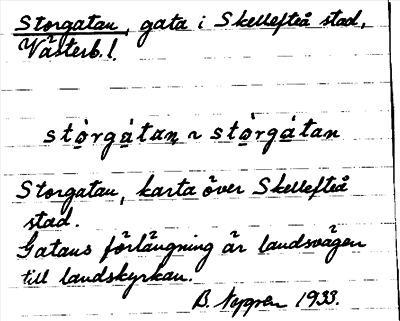 Storgatan, gata i Skellefteå stad,
Västerb. l.
stòrgátan ~ stòrgátan
Storgatan, karta över Skellefteå
stad.
Gatans förlängning är landsvägen
till landskyrkan.
B. Nygren 1933.